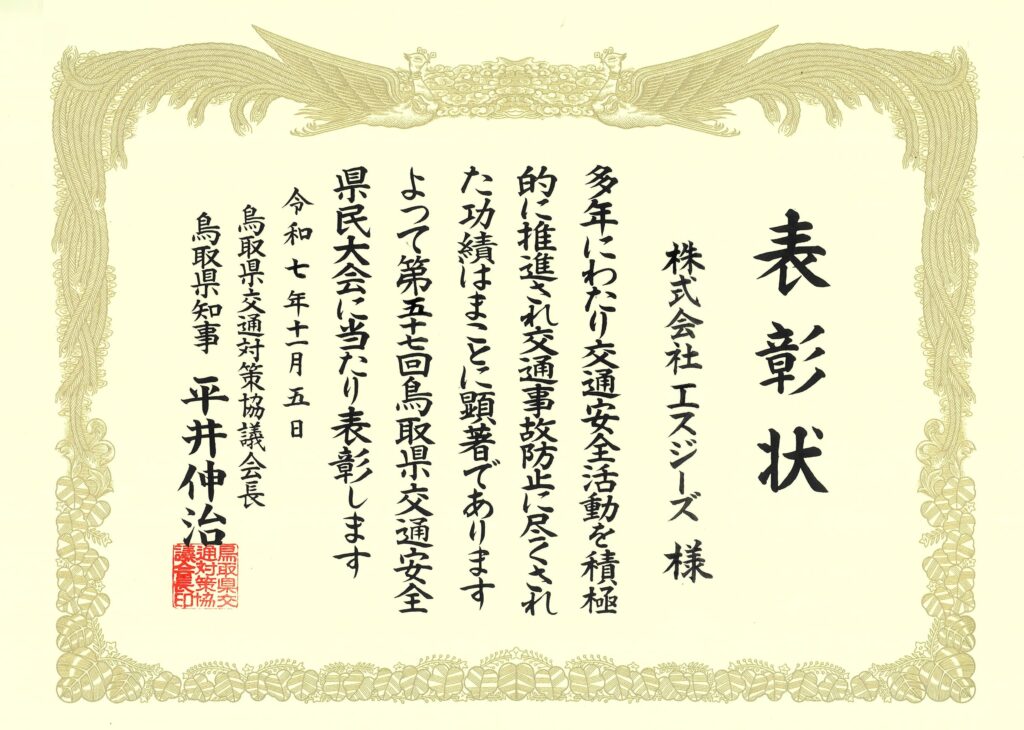 表彰状
株式会社 エスジーズ 様
多年にわたり交通安全活動を積極
的に推進され交通事故防止に尽くされ
た功績はまことに顕著であります
よって第五十七回鳥取県交通安全
県民大会に当たり表彰します
令和七年十一月五日
鳥取県交通対策協議会長
鳥取県知事 平井伸治
鳥取県交
通対策協
議会長印